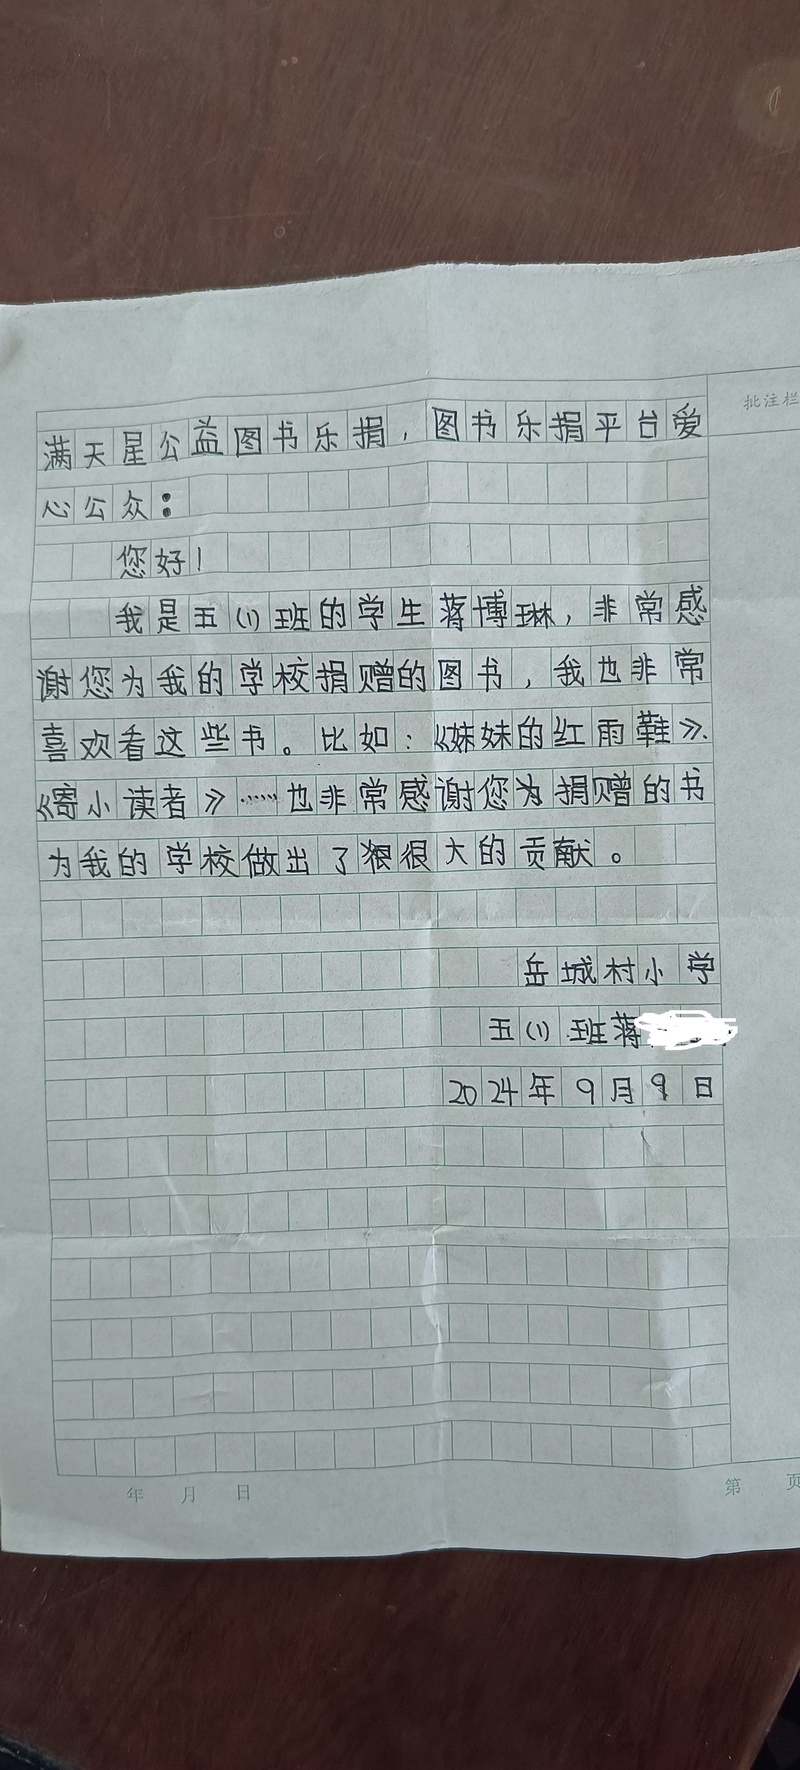 批注栏
满天星公益图书乐捐，图书乐捐平台爱
心公众：
您好！
我是五(1)班的学生蒋博琳，非常感
谢您为我的学校捐赠的图书，我也非常
喜欢看这些书。比如：《妹妹的红雨鞋》、
《寄小读者》……也非常感谢您为捐赠的书
为我的学校做出了狠很大的贡献。
岳城村小学
五(1)班蒋
2024年9月9日
年 月 日
第 页